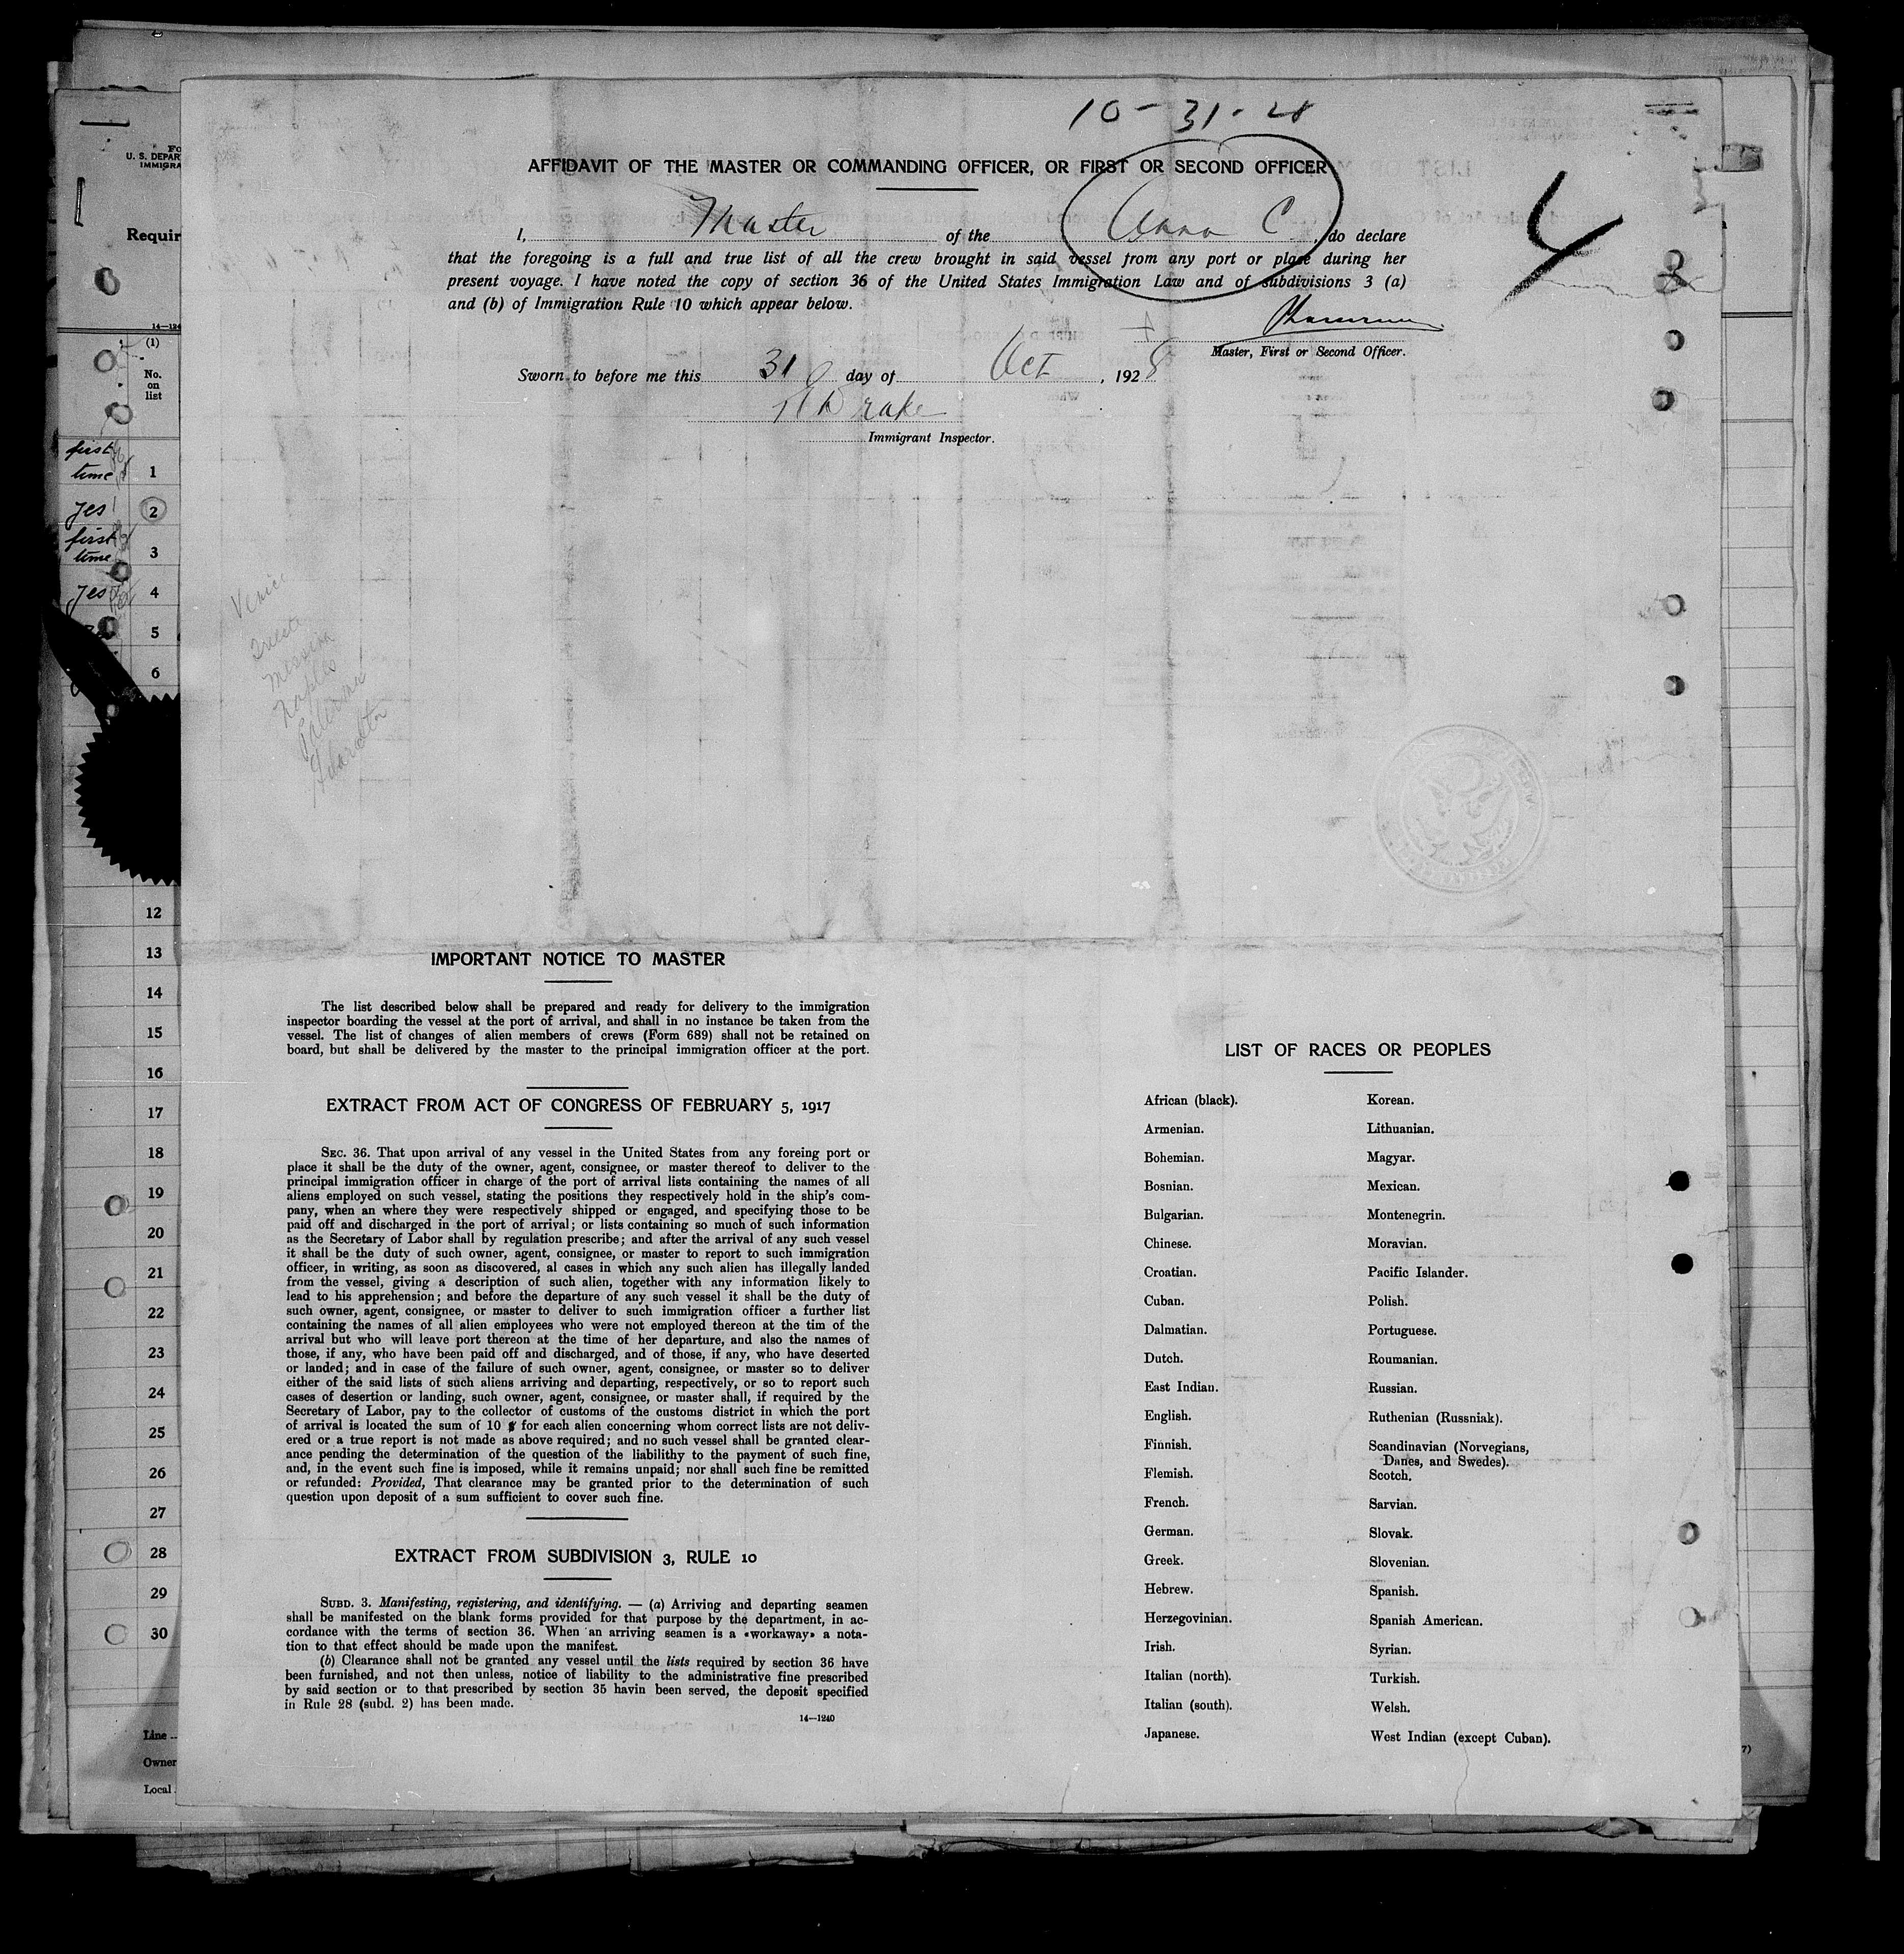 10-31-28
AFFIDAVIT OF THE MASTER OR COMMANDING OFFICER, OR FIRST OR SECOND OFFICER
4
I, Master of the Anna C. , do declare
that the foregoing is a full and true list of all the crew brought in said vessel from any port or place during her
present voyage. I have noted the copy of section 36 of the United States Immigration Law and of subdivisions 3 (a)
and (b) of Immigration Rule 10 which appear below.
Master, First or Second Officer.
Sworn to before me this 31 day of Oct , 1928
Drake
Immigrant Inspector.
U. S. DEPAR
IMMIGRA
Requir
14—124
(1)
No.
on
list
first
time 1
yes 2
first
time 3
yes 4
5
6
Venice
Trieste
Messina
Naples
12
13
14
15
16
17
18
19
20
21
22
23
24
25
26
27
28
29
30
Line
Owner
Local
IMPORTANT NOTICE TO MASTER
The list described below shall be prepared and ready for delivery to the immigration
inspector boarding the vessel at the port of arrival, and shall in no instance be taken from the
vessel. The list of changes of alien members of crews (Form 689) shall not be retained on
board, but shall be delivered by the master to the principal immigration officer at the port.
EXTRACT FROM ACT OF CONGRESS OF FEBRUARY 5, 1917
SEC. 36. That upon arrival of any vessel in the United States from any foreing port or
place it shall be the duty of the owner, agent, consignee, or master thereof to deliver to the
principal immigration officer in charge of the port of arrival lists containing the names of all
aliens employed on such vessel, stating the positions they respectively hold in the ship's com-
pany, when an where they were respectively shipped or engaged, and specifying those to be
paid off and discharged in the port of arrival; or lists containing so much of such information
as the Secretary of Labor shall by regulation prescribe; and after the arrival of any such vessel
it shall be the duty of such owner, agent, consignee, or master to report to such immigration
officer, in writing, as soon as discovered, al cases in which any such alien has illegally landed
from the vessel, giving a description of such alien, together with any information likely to
lead to his apprehension; and before the departure of any such vessel it shall be the duty of
such owner, agent, consignee, or master to deliver to such immigration officer a further list
containing the names of all alien employees who were not employed thereon at the tim of the
arrival but who will leave port thereon at the time of her departure, and also the names of
those, if any, who have been paid off and discharged, and of those, if any, who have deserted
or landed; and in case of the failure of such owner, agent, consignee, or master so to deliver
either of the said lists of such aliens arriving and departing, respectively, or so to report such
cases of desertion or landing, such owner, agent, consignee, or master shall, if required by the
Secretary of Labor, pay to the collector of customs of the customs district in which the port
of arrival is located the sum of 10 $ for each alien concerning whom correct lists are not deliv-
ered or a true report is not made as above required; and no such vessel shall be granted clear-
ance pending the determination of the question of the liabilithy to the payment of such fine,
and, in the event such fine is imposed, while it remains unpaid; nor shall such fine be remitted
or refunded: Provided, That clearance may be granted prior to the determination of such
question upon deposit of a sum sufficient to cover such fine.
EXTRACT FROM SUBDIVISION 3, RULE 10
SUBD. 3. Manifesting, registering, and identifying. — (a) Arriving and departing seamen
shall be manifested on the blank forms provided for that purpose by the department, in ac-
cordance with the terms of section 36. When an arriving seamen is a «workaway» a nota-
tion to that effect should be made upon the manifest.
(b) Clearance shall not be granted any vessel until the lists required by section 36 have
been furnished, and not then unless, notice of liability to the administrative fine prescribed
by said section or to that prescribed by section 35 havin been served, the deposit specified
in Rule 28 (subd. 2) has been made.
14—1240
LIST OF RACES OR PEOPLES
African (black).
Armenian.
Bohemian.
Bosnian.
Bulgarian.
Chinese.
Croatian.
Cuban.
Dalmatian.
Dutch.
East Indian.
English.
Finnish.
Flemish.
French.
German.
Greek.
Hebrew.
Herzegovinian.
Irish.
Italian (north).
Italian (south).
Japanese.
Korean.
Lithuanian.
Magyar.
Mexican.
Montenegrin.
Moravian.
Pacific Islander.
Polish.
Portuguese.
Roumanian.
Russian.
Ruthenian (Russniak).
Scandinavian (Norvegians,
Danes, and Swedes).
Scotch.
Sarvian.
Slovak.
Slovenian.
Spanish.
Spanish American.
Syrian.
Turkish.
Welsh.
West Indian (except Cuban).